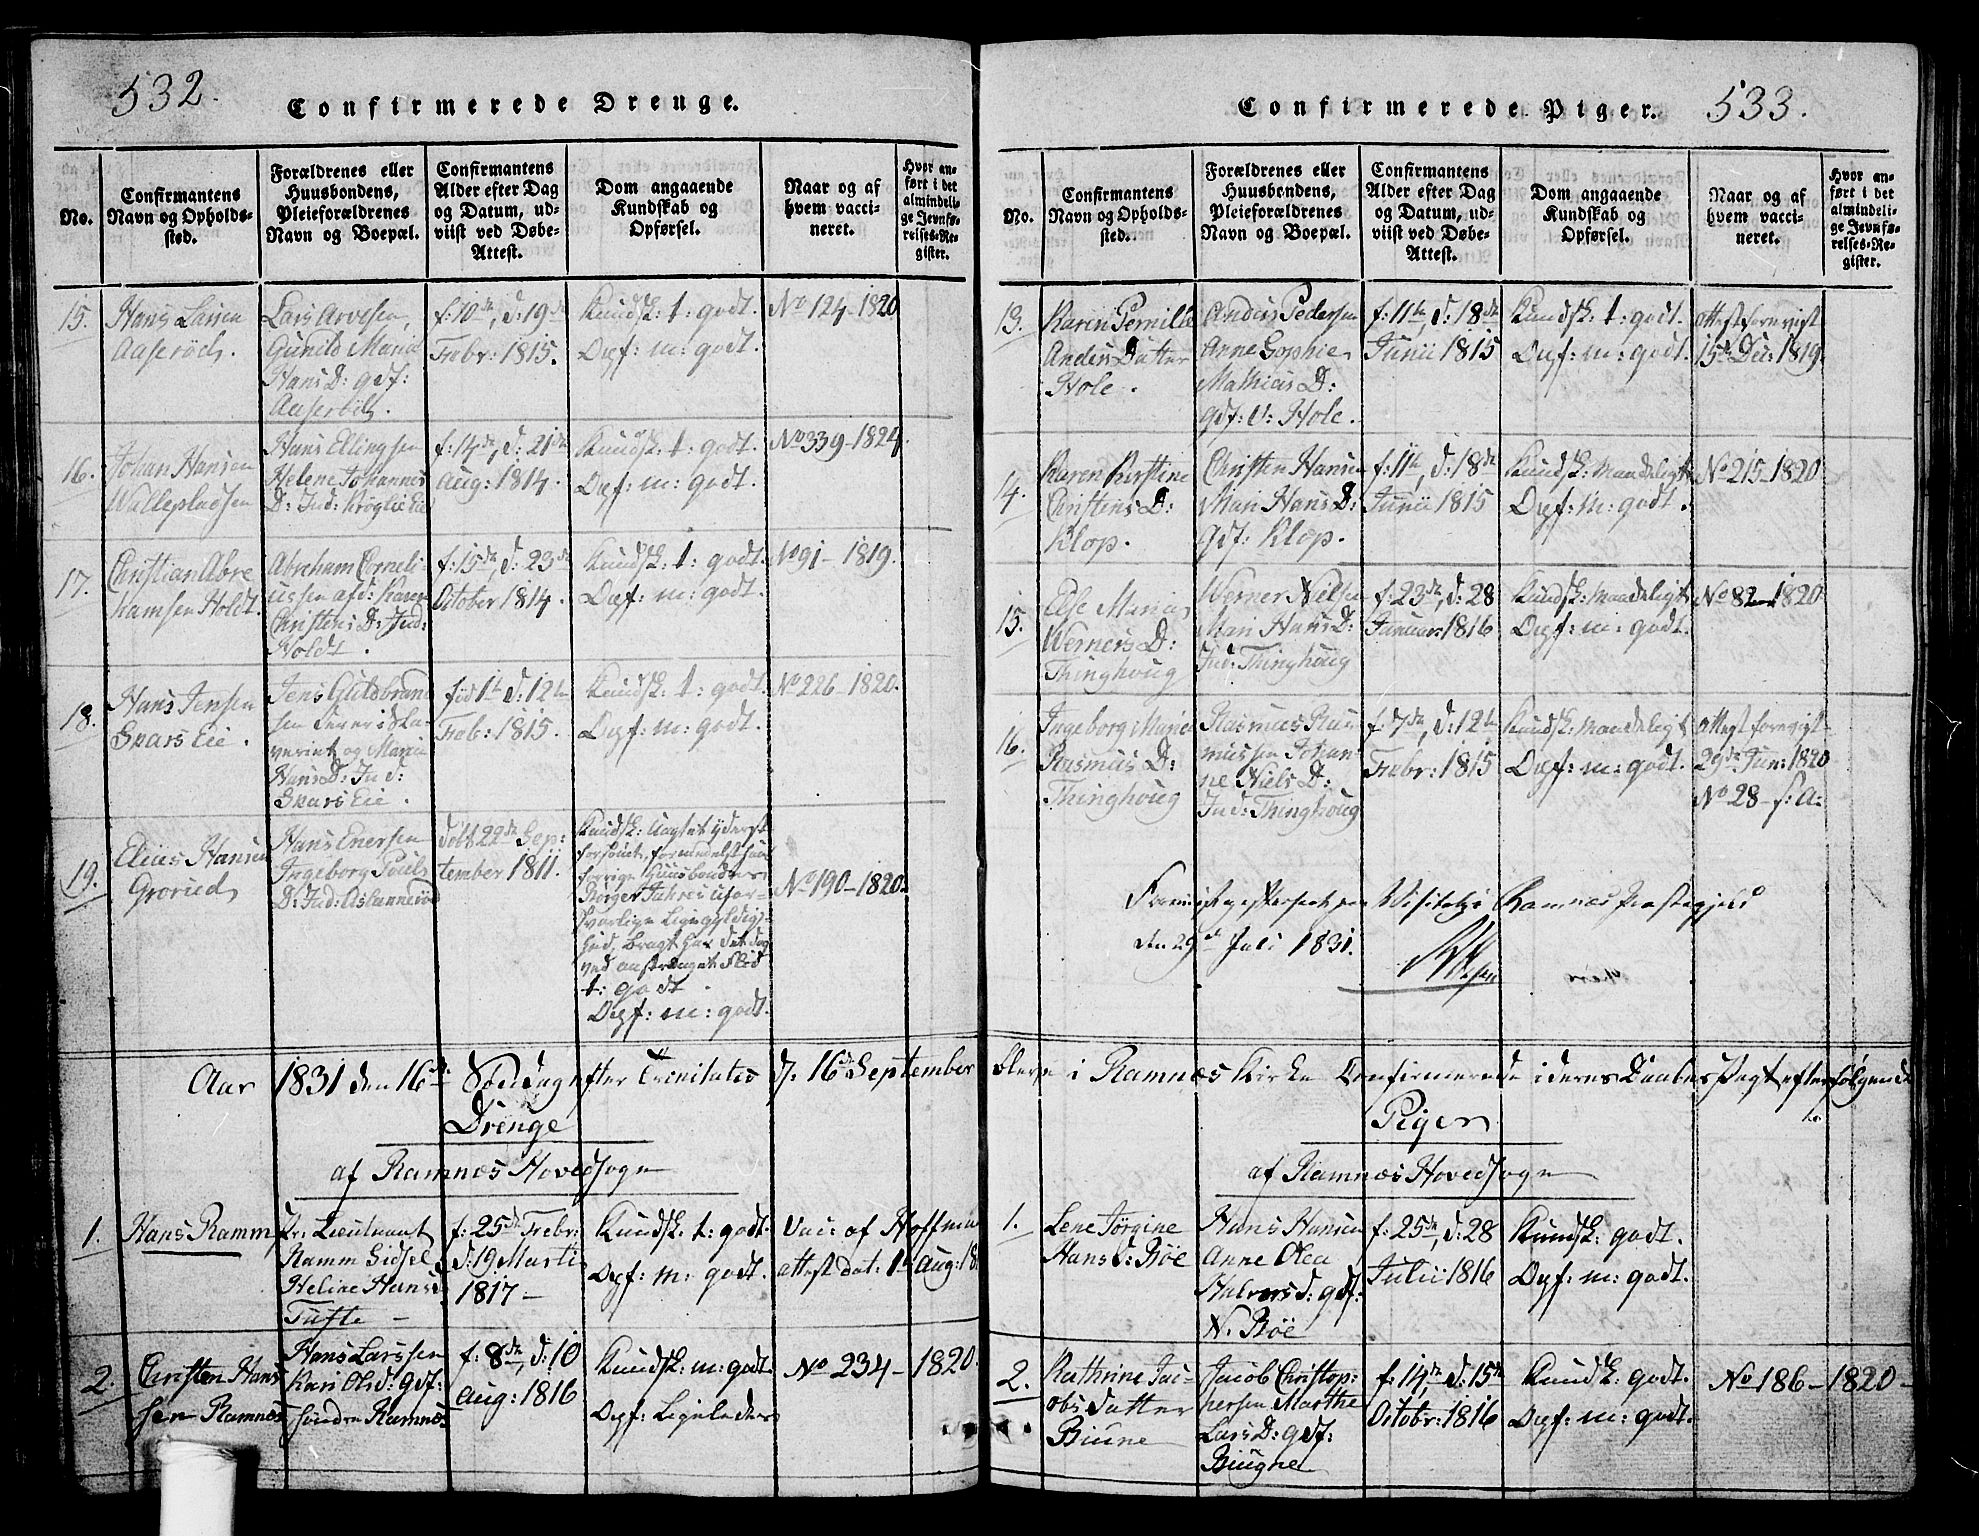 532.
Confirmerede Drenge.
No.
Confirmantens
Navn og Opholds-
sted.
Forældrenes eller
Huusbondens,
Pleieforældrenes
Navn og Boepæl.
Confirmantens
Alder efter Dag
og Datum, ud-
viist ved Døbe-
Attest.
Dom angaaende
Kundskab og
Opførsel.
Naar og af
hvem vacci-
neret.
Hvor an-
ført i det
almindeli-
ge Jevnfø-
relses-Re-
gister.
15.
Hans Larsen
Aaserød.
Lars Arvesen,
Gunild Maria
Hans D: gdf:
Aaserød.
f: 10de, d: 19de
Febr: 1815.
Kundsk: t: godt.
Opf: m: godt.
No 124-1820
16.
Johan Hansen
Wallepladsen
Hans Ellingsen
Helene Johannes
D: Ind: Krøglie Eie
f: 14de, d: 21de
Aug: 1814.
Kundsk: t: godt.
Opf: m: godt.
No 339-1824.
17.
Christian Abra
hamsen Holdt.
Abraham Corneli
ussen afd: Karen
Christens D: Ind:
Holdt.
f: 15de, d: 23de
October 1814.
Kundsk: t: godt.
Opf: m: godt.
No 91-1819.
18.
Hans Jensen
Skars Eie.
Jens Guldbrand
sen
og Maria
Hans D: Ind:
Skars Eie.
fød 1te d: 12te
Feb: 1815.
Kundsk: t: godt
Opf: m: godt.
No 226-1820.
19.
Elias Hansen
Grorud
Hans Enersen
Ingeborg Pouls
D: Ind:
døbt 22de Sep:
tember 1811.
Kundsk: Uagtet yderst
forsømt, formedelst hans
forrige Huusbondes
Børger Jahres ufor-
svarlige Ligegyldig-
hed, bragt har det dog
ved anstrænget Flid
t: godt.
Opf: m: godt.
No 190-1820.
Aar 1831 den 16de Søndag efter Trinitatis d. 16de September
Drenge
af Ramnæs Hovedsogn
1.
Hans Ramm
Pr. Lieutnant
Ramm Sidsel
Heline Hansd
Tufte -
f: 25de Febr:
d: 19 Marti
1817 -
Kundsk: t: godt.
Opf: m: godt.
Vac: af Hoffman
attest dat: 1te Aug: 18
2.
Christen Hans
sen Ramnæs
Hans Larssen
Kari Olsd: gdf:
søndre Ramnæs
f: 8de, d: 10
Aug: 1816
Kundsk: m: godt.
Opf: Ligeledes
No 234-1820.
Confirmerede Piger. 533.
No.
Confirmantens
Navn og Opholds-
sted.
Forældrenes eller
Huusbondens,
Pleieforældrenes
Navn og Boepæl.
Confirmantens
Alder efter Dag
og Datum, ud-
viist ved Døbe-
Attest.
Dom angaaende
Kundskab og
Opførsel.
Naar og af
hvem vacci-
neret.
Hvor an-
ført i det
almindeli-
ge Jevnfø-
relses-Re-
gister.
13.
Karen Pernille
Anders Datter
Hole.
Anders Pedersen
Anne Sophie
Mathias D:
gdf: v: Hole.
f: 11te, d: 18de
Junii 1815
Kundsk: t: godt.
Opf: m: godt.
attest forevist
15de Dec: 1819.
14.
Karen Kirstine
Christens D:
Klop.
Christen Hansen
Mari Hans D:
gdf: Klop.
f: 11te, d: 18de
Junii 1815
Kundsk: maadeligt
Opf: m: godt.
No 215-1820
15.
Else Maria
Werners D:
Thinghoug
Werner Nielsen
Mari Hans D:
Ind: Thinghoug
f: 23de, d: 28
Januar: 1816
Kundsk: maadeligt
Opf: m: godt.
No 82-1820
16.
Ingeborg Marie
Rasmus D:
Thinghoug
Rasmus Ras
mussen Johan
ne Niels D:
Ind: Thinghoug
f: 7de, d: 12te
Febr: 1815
Kundsk: maadeligt
Opf: m: godt.
attest forevist
29de Jun: 1820
No 28 f: A:
Visitats i Ramnæs Præstegjeld
den 29de Juli 1831.
blev i Ramnæs Kirke Confirmerede i deres Daabes Pagt efterfølgende
Piger
af Ramnæs Hovedsogn
1.
Lene Jørgine
Hansd: Bøe
Hans Hansen
Anne Olea
Halvorsd: gdf:
N. Bøe
f: 25de, d: 28
Julii 1816
Kundsk: godt.
Opf: m: godt.
2.
Kathrine Jac
obs datter
Biune
Jacob Christop:
hersen Marthe
Lars D: gdf:
Biugne
f: 14de, d: 15de
Octobr: 1816
Kundsk: godt.
Opf: m: godt.
No 186-1820-